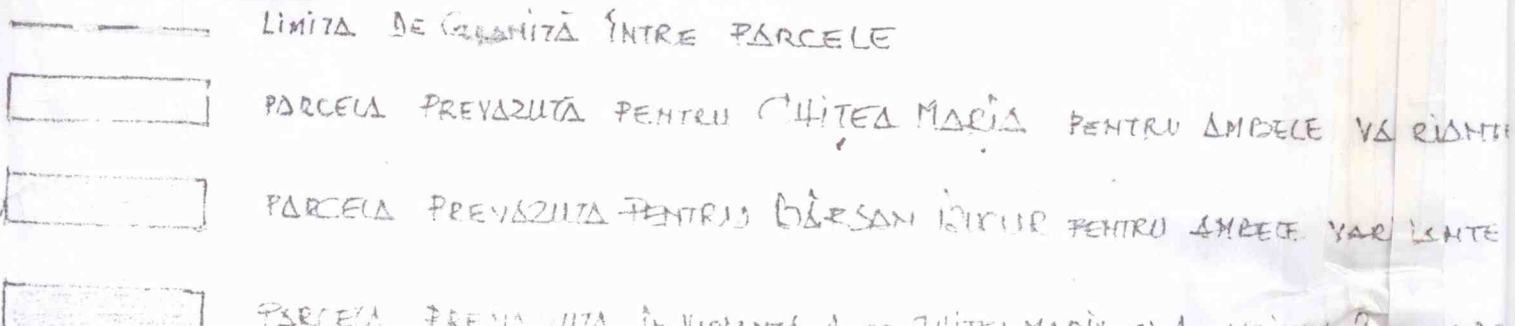 LIMITA DE GRANIȚĂ ÎNTRE PARCELE
PARCELA PREVAZUTĂ PENTRU CHIȚEA MARIA PENTRU AMBELE VARIANTE
PARCELA PREVAZUTA PENTRU BÂRSAN BUCUR PENTRU AMBELE VARIANTE
PARCELA PREVAZUTA ÎN VARIANTA A MARIA